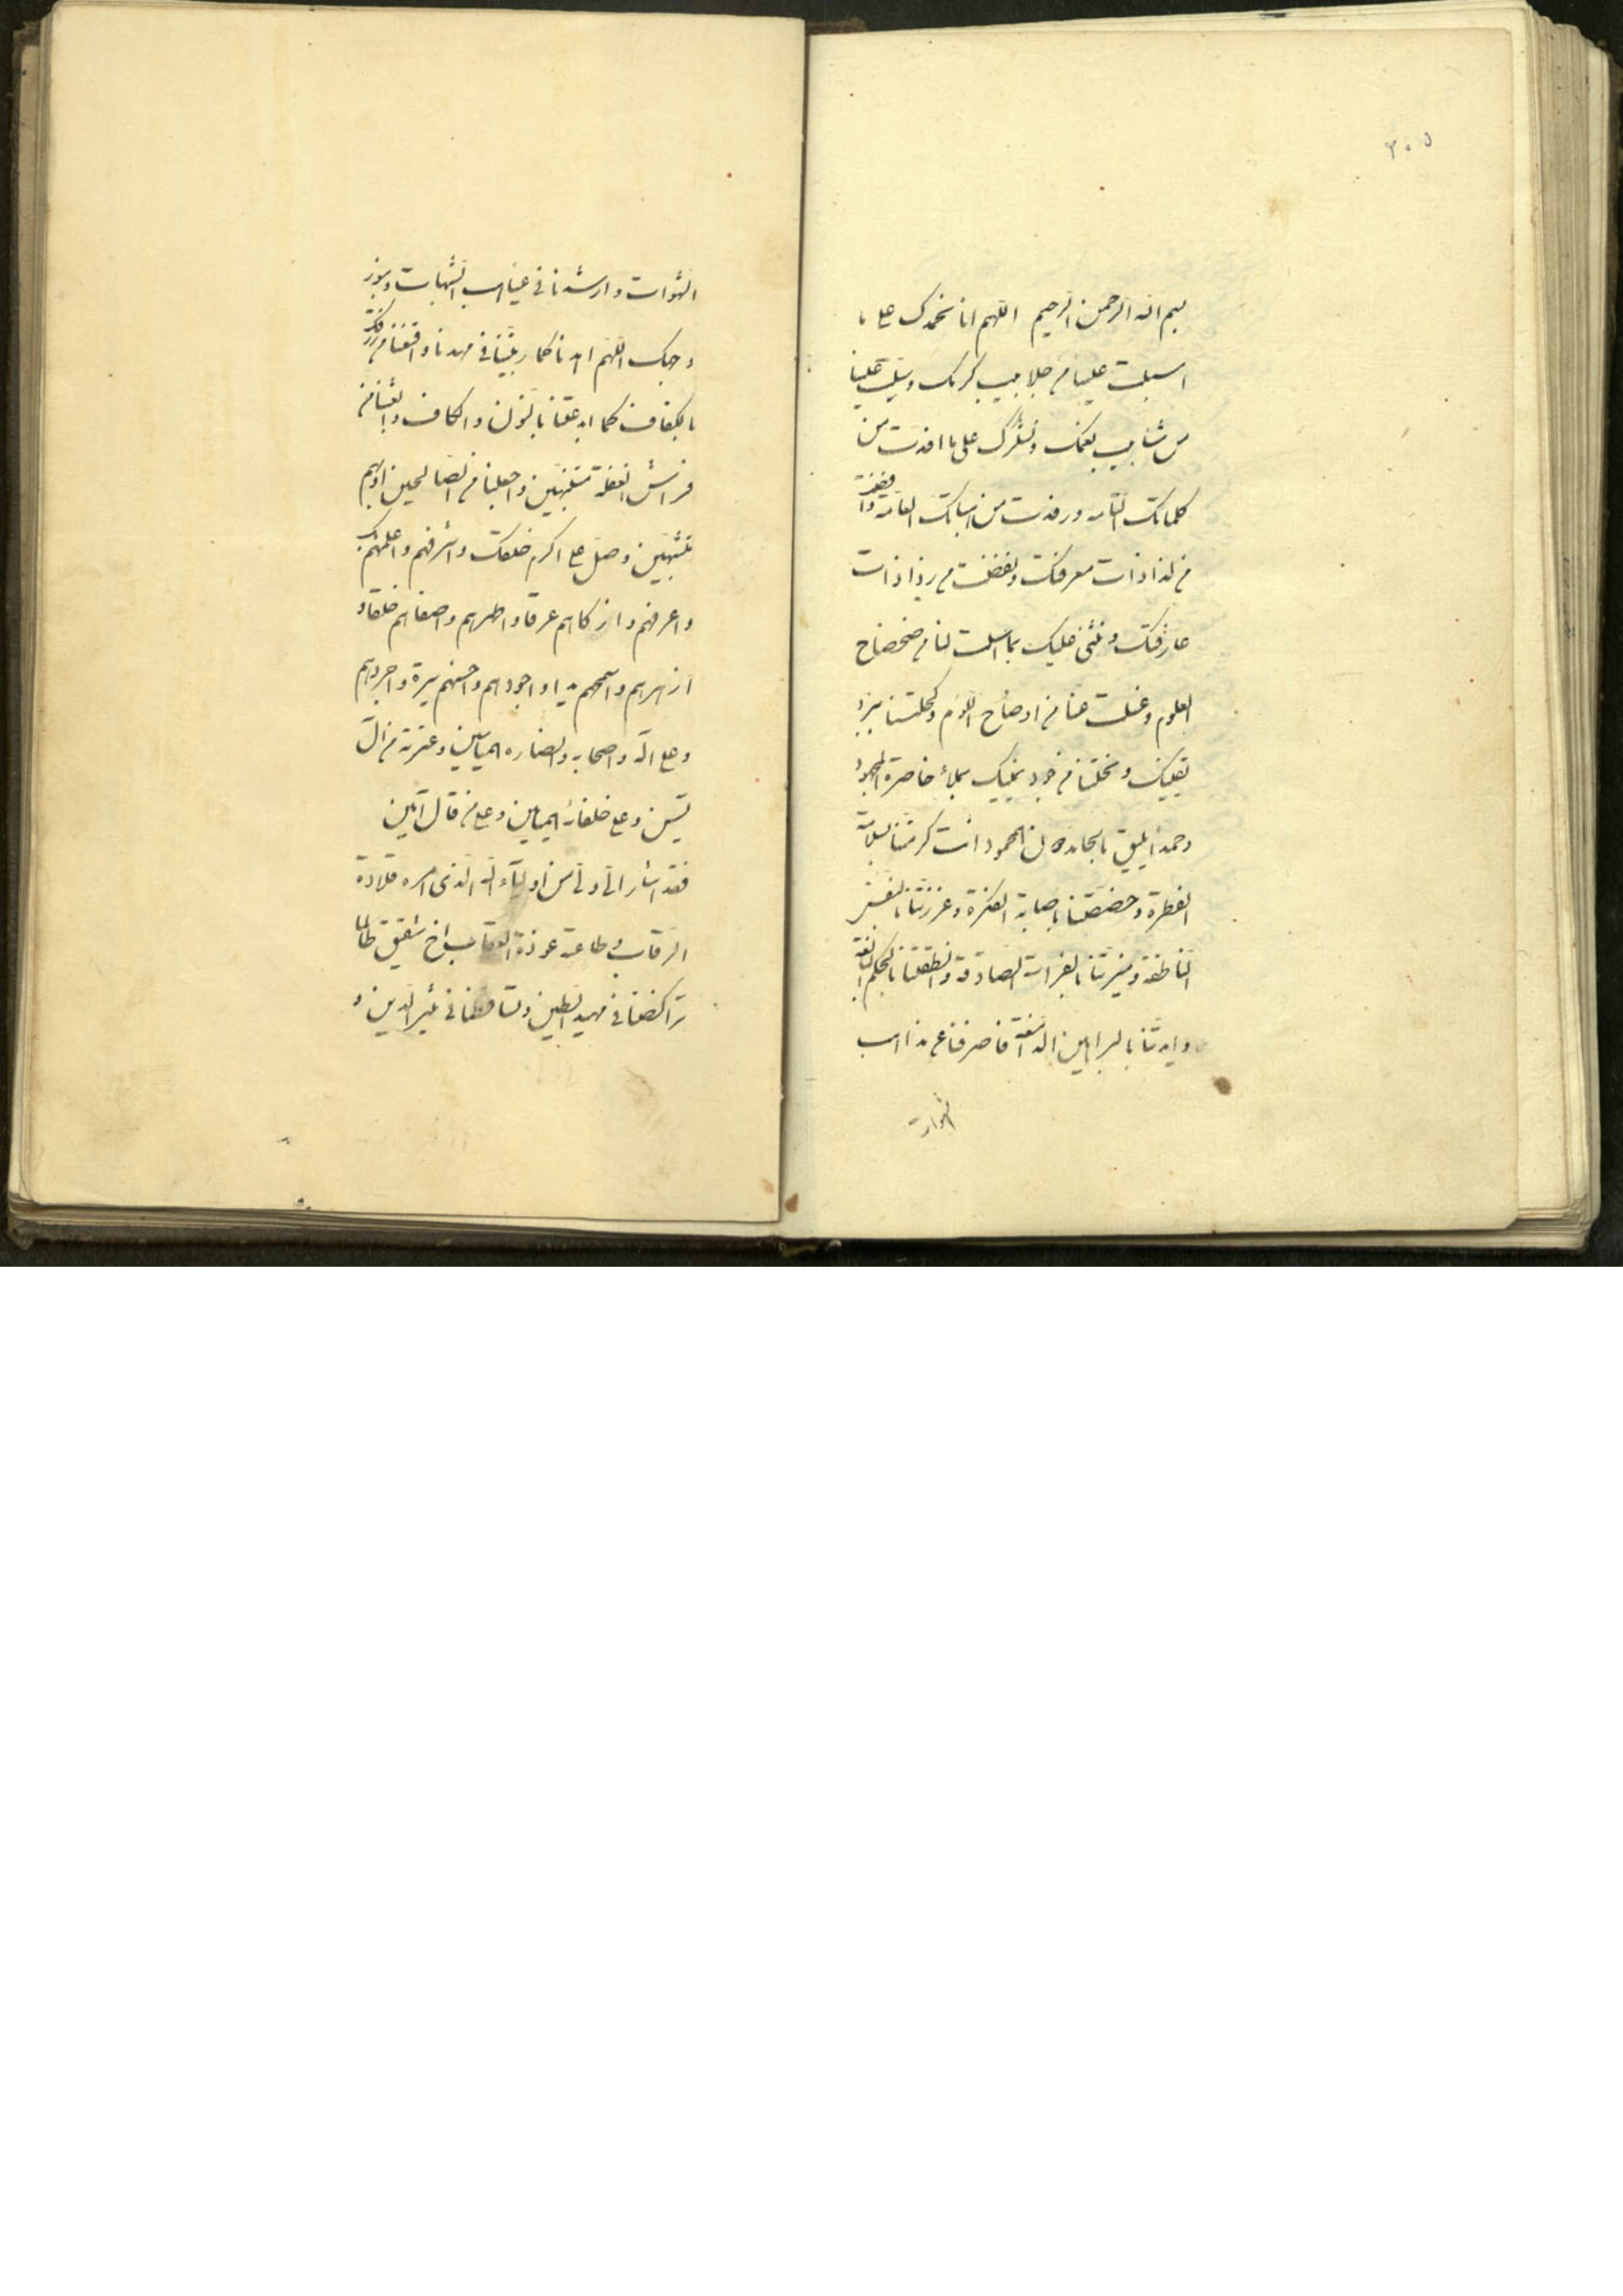 ٣٠٥
بسم الله الرحمن الرحيم اللهم انا نحمدك على ما
اسبلت علينا من جلابيب كرمك وسيلت علينا
من شآبيب نعمك ونشكرك على ما افدت من
كلماتك التامه ورفدت من اساتك العامة وافضت
من لذاذات معرفتك وتفضلت من رذاذات
عارفتك ونثني عليك بما اسلت لنا من ضحضاح
العلوم وغسلت عنا من اوضاح اللوم وكحلتنا
يقينك ونحلتنا من يملاء خاصرة
وحمدا يليق المحمود انت كرمتنا بسلامة
الفطرة وخصصتنا باصابة الفكرة وعززتنا بالنفس
الناطقة وميزتنا الصادقة وانطقتنا بالحكم البالغة
وايدتنا بالبراهين الدامغة فاصرفنا عن مذاهب
الشهوات
الشهوات وارشدنا في غياهب الشبهات وبنور
وجهك اللهم اهدنا كما ربيتنا في مهدنا واقنعنا من رزقك
بالكفاف كما ابدعتنا بالنون والكاف وابعثنا من
فراش الغفلة متنبهين واجعلنا من الصالحين او بهم
متشبهين وصل على اكرم خلقك واشرفهم واعلمهم بك
واعرفهم وازكاهم عرقا واطهرهم واصفاهم خلقا و
ازهرهم واسمحهم يدا واجودهم واحسنهم سيرة واجردهم
وعلى اله واصحابه وانصاره الميامين وعترته من ال
يسين وعلى خلفائه الميامين وعلى من قال آمين
فقد اشار الي من اولياء الله الذي امره قلادة
الرقاب وطاعته عوذة اخ شقيق طالما
تراكضنا في مهد الطين وتساقطنا في الدين و